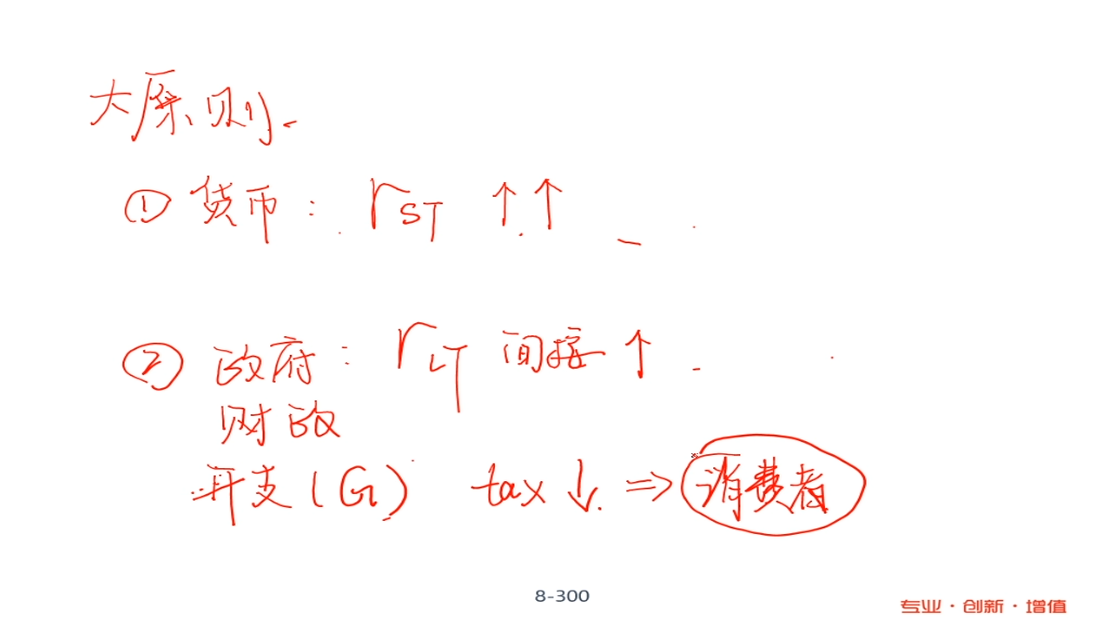 大原则.
① 货币: rST ↑↑
② 政府: rLT 间接 ↑
财政
开支(G) tax ↓. ⇒ 消费者
8-300
专业·创新·增值